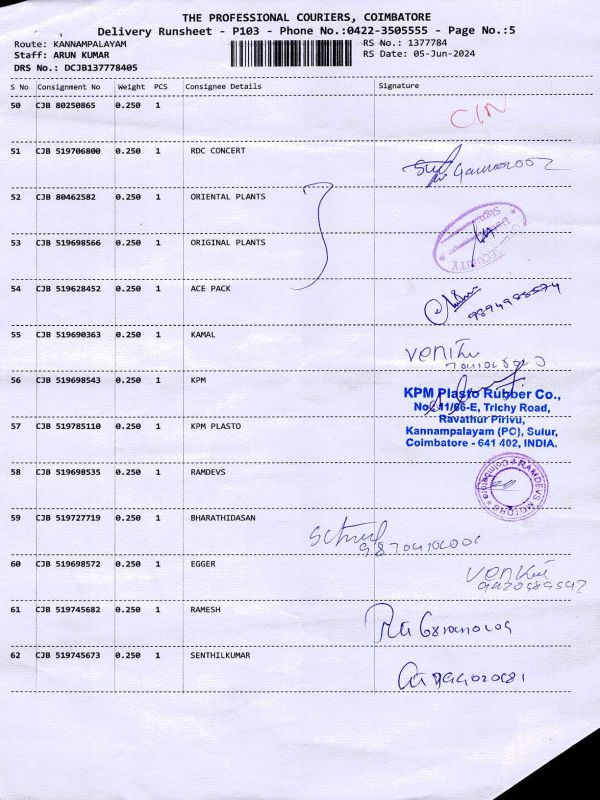 THE PROFESSIONAL COURIERS, COIMBATORE
Delivery Runsheet - P103 - Phone No.:0422-3505555 - Page No.:5
Route: KANNAMPALAYAM RS No.: 1377784
Staff: ARUN KUMAR RS Date: 05-Jun-2024
DRS No.: DCJB137778405
S No Consignment No Weight PCS Consignee Details Signature
50 CJB 80250865 0.250 1
C/N
51 CJB 519706800 0.250 1 RDC CONCERT
52 CJB 80462582 0.250 1 ORIENTAL PLANTS
53 CJB 519698566 0.250 1 ORIGINAL PLANTS
SECURITY
54 CJB 519628452 0.250 1 ACE PACK
55 CJB 519690363 0.250 1 KAMAL
56 CJB 519698543 0.250 1 KPM
KPM Plasto Rubber Co.,
No. 11/66-E, Trichy Road,
Ravathur Pirivu,
57 CJB 519785110 0.250 1 KPM PLASTO
Kannampalayam (PO), Sulur,
Coimbatore - 641 402, INDIA.
58 CJB 519698535 0.250 1 RAMDEVS
RAMDEVS MOTORS Coimbatore
59 CJB 519727719 0.250 1 BHARATHIDASAN
60 CJB 519698572 0.250 1 EGGER
61 CJB 519745682 0.250 1 RAMESH
62 CJB 519745673 0.250 1 SENTHILKUMAR